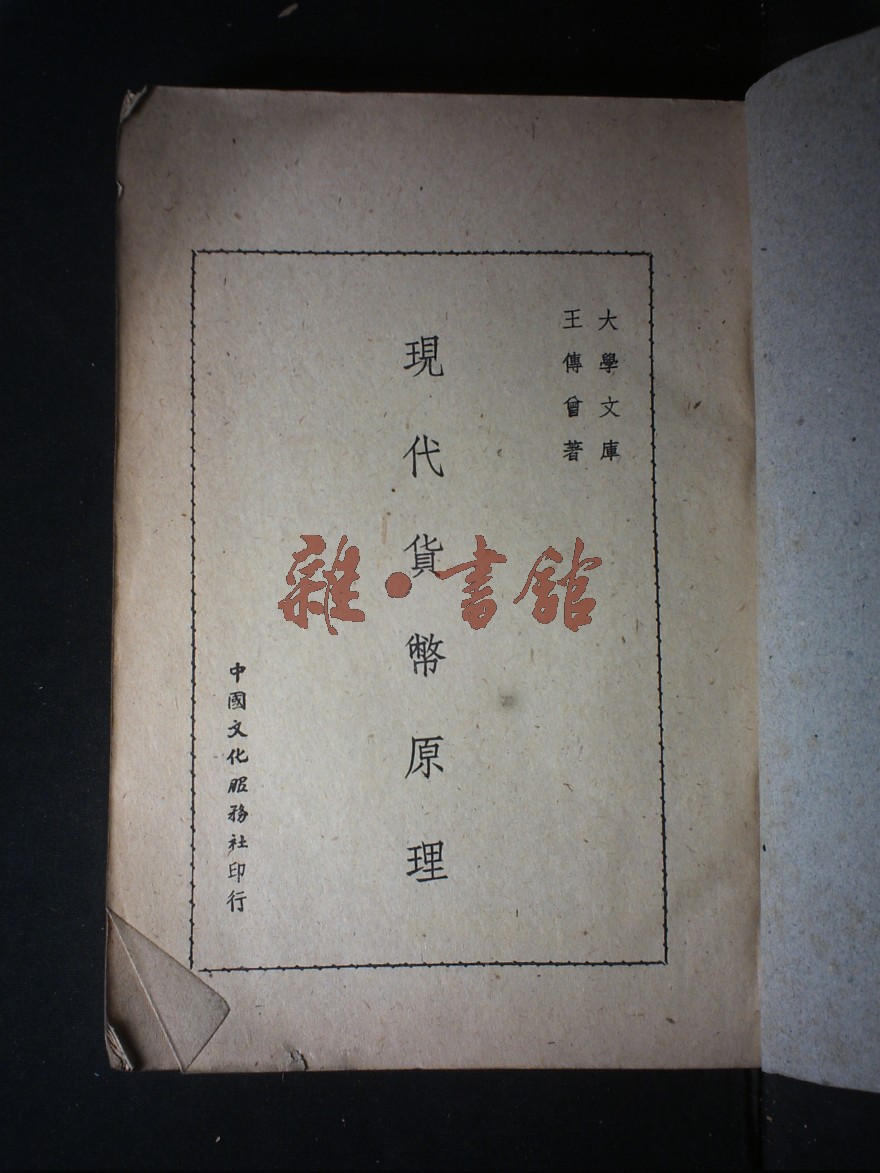 大學文庫
王傳曾著
現代貨幣原理
中國文化服務社印行
雜·書館